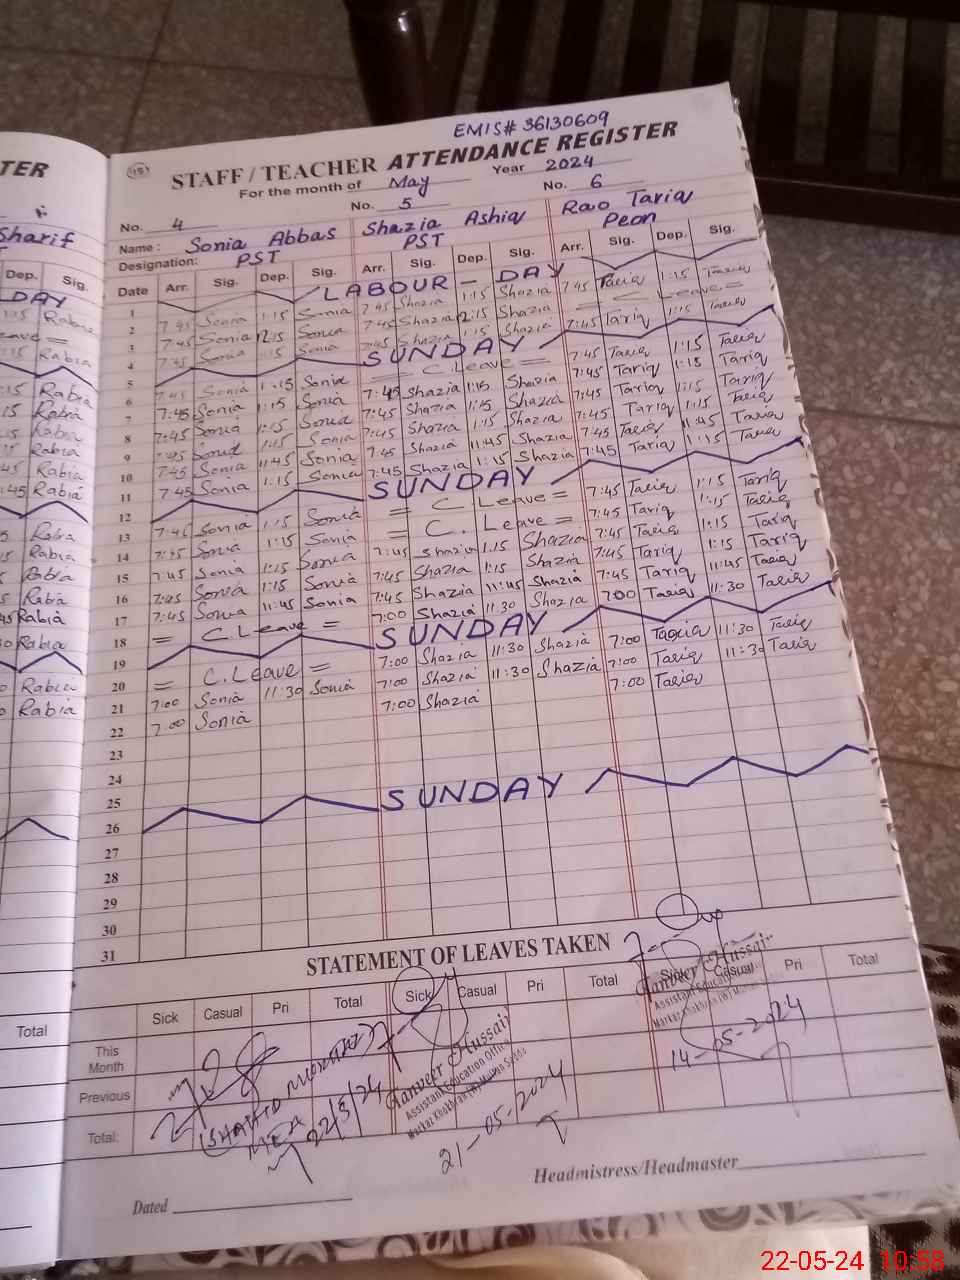 EMIS# 36130609
STAFF / TEACHER ATTENDANCE REGISTER
For the month of May Year 2024
No. 4 No. 5 No. 6
Name: Sonia Abbas Shazia Ashiq Rao Tariq
Designation: PST PST Peon
Date Arr. Sig. Dep. Sig. Arr. Sig. Dep. Sig. Arr. Sig. Dep. Sig.
1 LABOUR - DAY
2 7:45 Sonia 1:15 Sonia 7:45 Shazia 1:15 Shazia 7:45 Tariq 1:15 Tariq
3 7:45 Sonia 12:15 Sonia 7:45 Shazia 12:15 Shazia = C Leave =
4 7:45 Sonia 1:15 Sonia 7:45 Shazia 1:15 Shazia 7:45 Tariq 1:15 Tariq
5 SUNDAY
6 7:45 Sonia 1:15 Sonia = C. Leave = 7:45 Tariq 1:15 Tariq
7 7:45 Sonia 1:15 Sonia 7:45 Shazia 1:15 Shazia 7:45 Tariq 1:15 Tariq
8 7:45 Sonia 1:15 Sonia 7:45 Shazia 1:15 Shazia 7:45 Tariq 1:15 Tariq
9 7:45 Sonia Sonia 7:45 Shazia 1:15 Shazia 7:45 Tariq 1:15 Tariq
10 7:45 Sonia 11:45 Sonia 7:45 Shazia 11:45 Shazia 7:45 Tariq 11:45 Tariq
11 7:45 Sonia 1:15 Sonia 7:45 Shazia 1:15 Shazia 7:45 Tariq 1:15 Tariq
12 SUNDAY
13 7:45 Sonia 1:15 Sonia = C Leave = 7:45 Tariq 1:15 Tariq
14 7:45 Sonia 1:15 Sonia = C. Leave = 7:45 Tariq 1:15 Tariq
15 7:45 Sonia 1:15 Sonia 7:45 Shazia 1:15 Shazia 7:45 Tariq 1:15 Tariq
16 7:45 Sonia 1:15 Sonia 7:45 Shazia 1:15 Shazia 7:45 Tariq 1:15 Tariq
17 7:45 Sonia 11:45 Sonia 7:45 Shazia 11:45 Shazia 7:45 Tariq 11:45 Tariq
18 = C. Leave = 7:00 Shazia 11:30 Shazia 7:00 Tariq 11:30 Tariq
19 SUNDAY
20 = C. Leave = 7:00 Shazia 11:30 Shazia 7:00 Tariq 11:30 Tariq
21 7:00 Sonia 11:30 Sonia 7:00 Shazia 11:30 Shazia 7:00 Tariq 11:30 Tariq
22 7:00 Sonia 7:00 Shazia 7:00 Tariq
23
24
25
26 SUNDAY
27
28
29
30
31
STATEMENT OF LEAVES TAKEN
Sick Casual Pri Total Sick Casual Pri Total Sick Casual Pri Total
This Month
Previous
Total:
MEA
22/5/24
Tanveer Hussain
Assistant Education Officer
21-05-2024
Tanveer Hussain
Assistant Education
14-05-2024
Headmistress/Headmaster
Dated
22-05-24 10:58